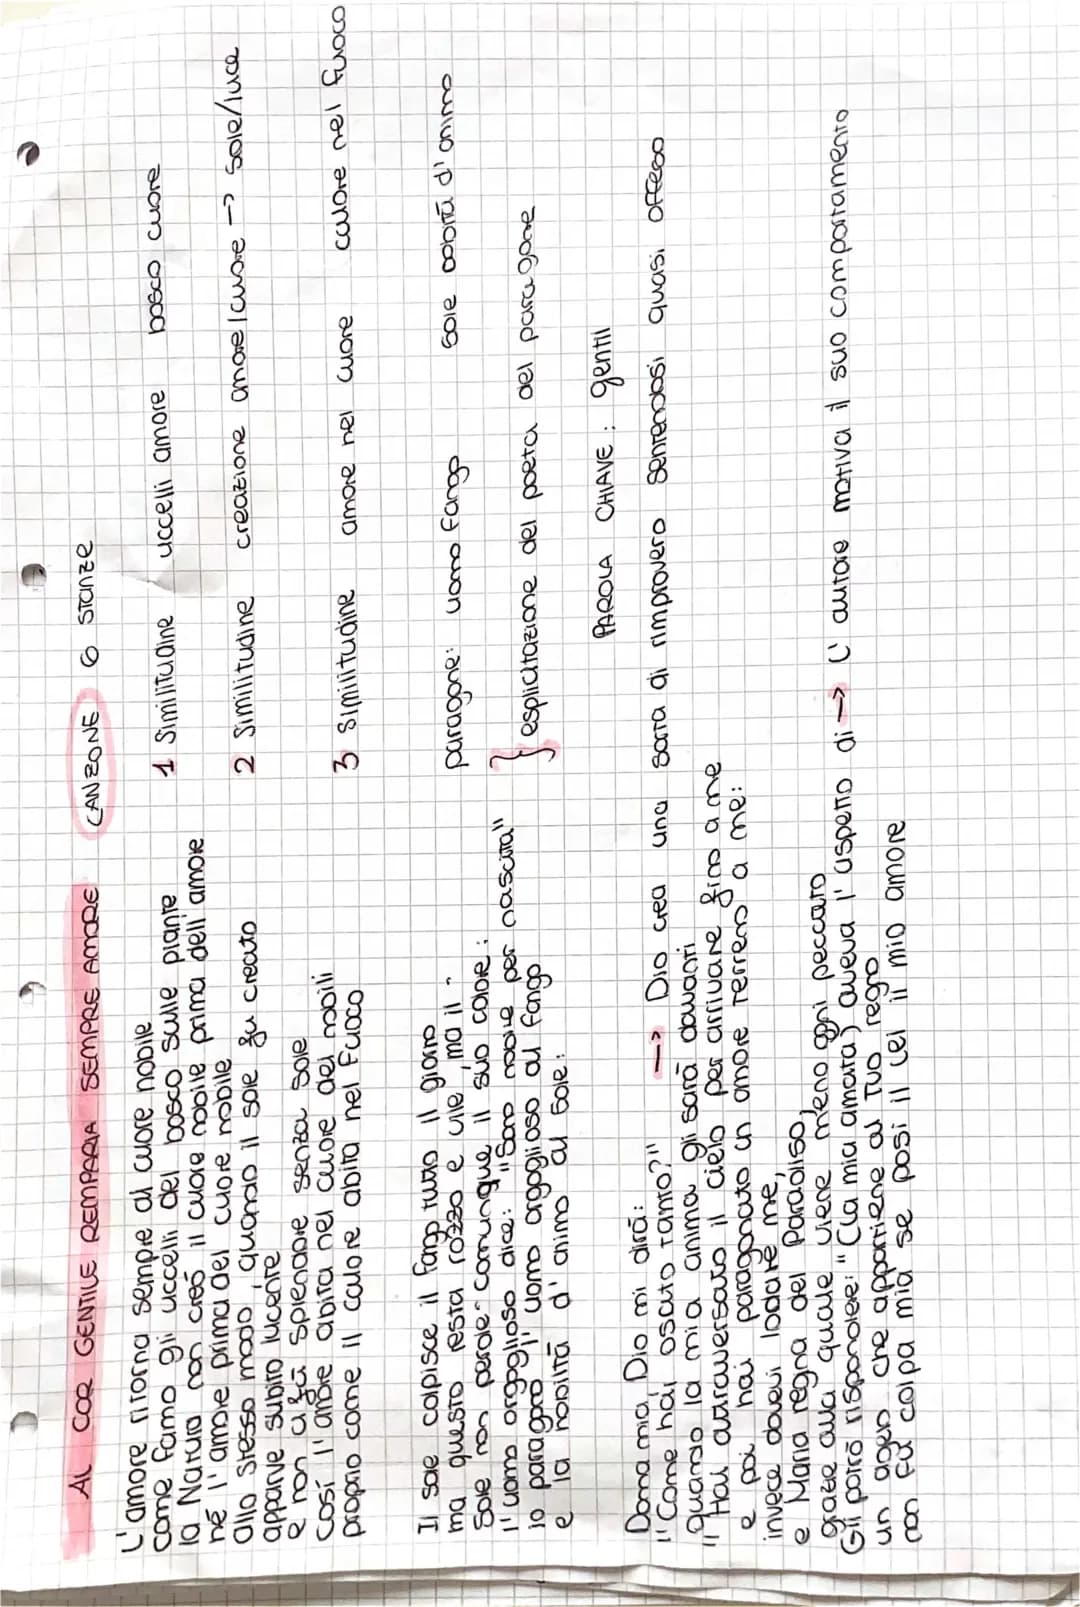 AL COR GENTILE REMPARIA SEMPRE AMORE CANZONE 6 STANZE
L'amore ritorna sempre al cuore nobile
come fanno gli uccelli del bosco sulle piante
la Natura non creò il cuore nobile prima dell'amore
né l'amore prima del cuore nobile
allo stesso modo, quando il sole fu creato
apparve subito lucente
e non ci fu splendore senza sole
Così l'amore abita nel cuore dei nobili
proprio come il calore abita nel fuoco
1 Similitudine uccelli amore bosco cuore
2 Similitudine creazione amore/cuore → sole/luce
3 Similitudine amore nel cuore calore nel fuoco
Il sole colpisce il fango tutto il giorno
ma questo resta rozzo e vile, ma il
sole non perde comunque il suo calore:
l'uomo orgoglioso dice: "Sono nobile per nascita"
io paragono l'uomo orgoglioso al fango
e la nobiltà d'animo al sole:
paragone: uomo fango sole nobiltà d'animo
} esplicitazione del poeta del paragone
PAROLA CHIAVE: gentil
Donna mia, Dio mi dirà:
"Come hai osato tanto?"
Quando la mia anima gli sarà davanti
"Hai attraversato il cielo per arrivare fino a me
e poi hai paragonato un amore terreno a me:
invece dovevi lodare me,
e Maria regna del Paradiso,
grazie alla quale viene meno ogni peccato
Gli potrò rispondere: "(la mia amata) aveva l'aspetto di
un angelo che appartiene al Tuo regno
non fu colpa mia se posi il lei il mio amore
→ Dio crea una sorta di rimprovero sentendosi quasi offeso
→ L'autore motiva il suo comportamento